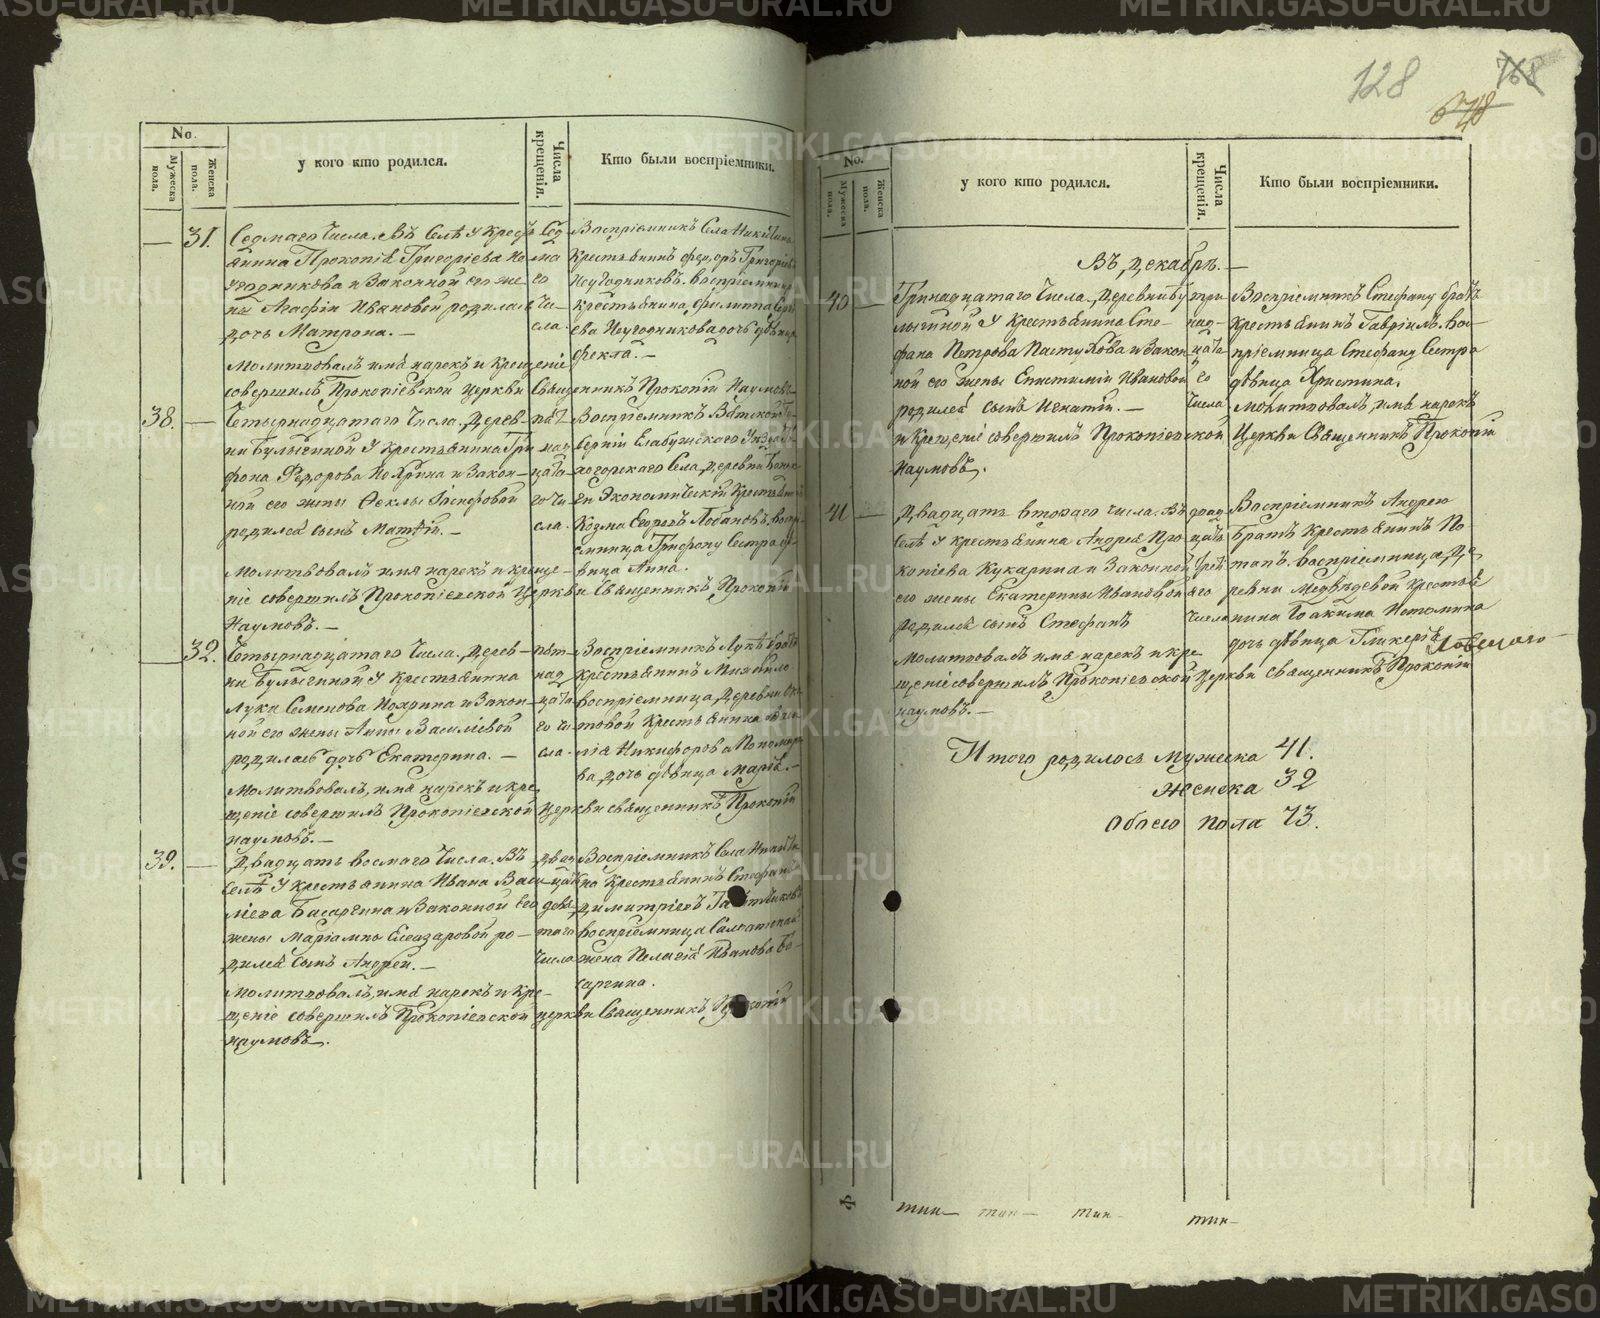 128
768
678
No.
Мужеска пола.
Женска пола.
у кого кто родился.
Числа крещенія.
Кто были воспріемники.
31.
Седмаго Числа. Въ Селѣ У Кресть
янина Прокопія Григоріева Не
угодникова и Законной его же
ны Агафіи Ивановой родилась
дочь Матрона. —
Сед
ма
го
Чи
сла.
Воспріемникъ Села Никитина
Крестьянинъ Ѳедоръ Григоріевъ
Неугодниковъ. воспріемница
крестьянина Филиппа
ева Неугодникова дочь дѣвица
Ѳекла. —
Молитвовалъ имя нарекъ и Крещеніе
совершилъ Прокопіевской Церкви Священникъ Прокопій Наумовъ
38.
Четырнадцатаго Числа. Дерев—
ни Булыгиной У Крестьянина Три
фона Ѳедорова Нохрина и Закон—
ной его жены Ѳеклы Іосифовой
родился сынъ Матѳій. —
пят—
над
цата
го Чи
сла.
Воспріемникъ Вятской Гу
берніи Елабужскаго Уезда
Экономическій Крестьянинъ
Козма Егоровъ Лобановъ. воспрі
емница Трифону Сестра дѣ—
вица Анна.
Молитвовалъ имя нарекъ и креще—
ніе совершилъ Прокопіевской Церкви Священникъ Прокопій
Наумовъ. —
32.
Четырнадцатаго Числа. Дерев—
ни Булыгиной У Крестьянина
Луки Семенова Нохрина и Закон—
ной его жены Анны Василіевой
родилась дочь Екатерина. —
пят—
над
цата
го чи
сла.
Воспріемникъ Лукѣ братъ
крестьянинъ Михайло
воспріемница Деревни
Крестьянина
Никифорова Пономаре
ва дочь дѣвица Марія. —
Молитвовалъ, имя нарекъ и кре
щеніе совершилъ Прокопіевской церкви священникъ Прокопій
наумовъ. —
39.
Двадцать восмаго Числа. Въ
Селѣ У крестьянина Ивана Васи
ліева Басаргина и Законной его
жены Маріамны Елеазаровой ро—
дился сынъ Андрей. —
двад
цать
девя
таго
числа
Воспріемникъ Села Никити
на Крестьянинъ Стефанъ
Димитріевъ
воспріемница Салдатская
жена Пелагія Иванова Ба
саргина.
Молитвовалъ, имя нарекъ и Кре—
щеніе совершилъ Прокопіевской церкви Священникъ Прокопій
наумовъ.
No.
Мужеска пола.
Женска пола.
у кого кто родился.
Числа крещенія.
Кто были воспріемники.
Въ Декабрѣ. —
40
Тринадцатаго Числа. Деревни Бу
лыгиной У Крестьянина Сте—
фана Петрова Пастухова и Закон
ной его жены Епистиміи Ивановой
родился сынъ Игнатій. —
три
над—
цата
го
Числа
Воспріемникъ Стефану братъ
Крестьянинъ Гавріилъ. Вос—
пріемница Стефану Сестра
дѣвица Христина.
Молитвовалъ, имя нарекъ
и Крещеніе совершилъ Прокопіевской Церкви Священникъ Прокопій
Наумовъ.
41
Двадцать втораго числа. Въ
Селѣ У крестьянина Андрея Про—
копіева Кукарина и Законной
его жены Екатерины Ивановой
родился сынъ Стефанъ
двад
цать
трет
яго
Числа
Воспріемникъ Андрею
Братъ Крестьянинъ По
тапъ. воспріемница Де
ревни Медведевой Крестья
нина Іоакима Истомина
дочь дѣвица Гликерія
Молитвовалъ имя нарекъ и кре
щеніе совершилъ Прокопіевской Церкви священникъ Прокопій
наумовъ. —
Итого родилось Мужеска 41.
Женска 32
Обоего пола 73.